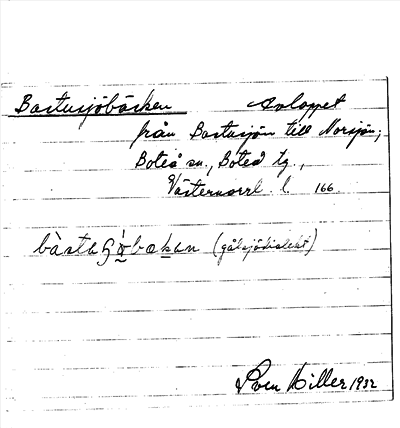 Bastusjöbäcken Avloppet
från Bastusjön till Norsjön;
Boteå sn., Boteå tg.,
Västernorrl. l. 166
(gålsjödialekt)
Sven Hiller 1932